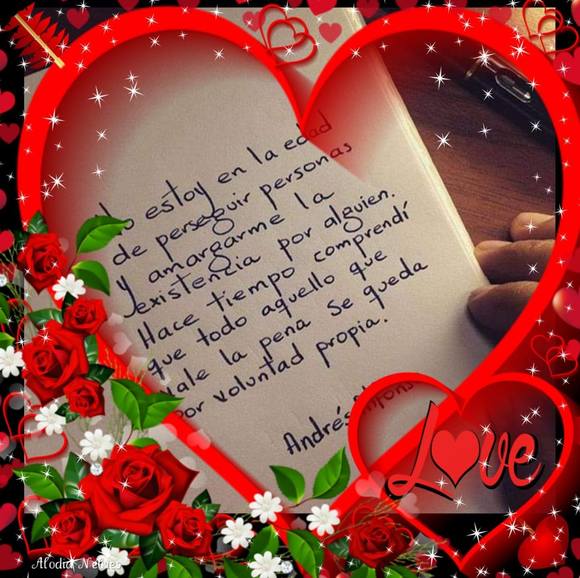 No estoy en la edad
de perseguir personas
y amargarme la
existencia por alguien.
Hace tiempo comprendí
que todo aquello que
vale la pena se queda
por voluntad propia.
Andrés
Love
Alodia